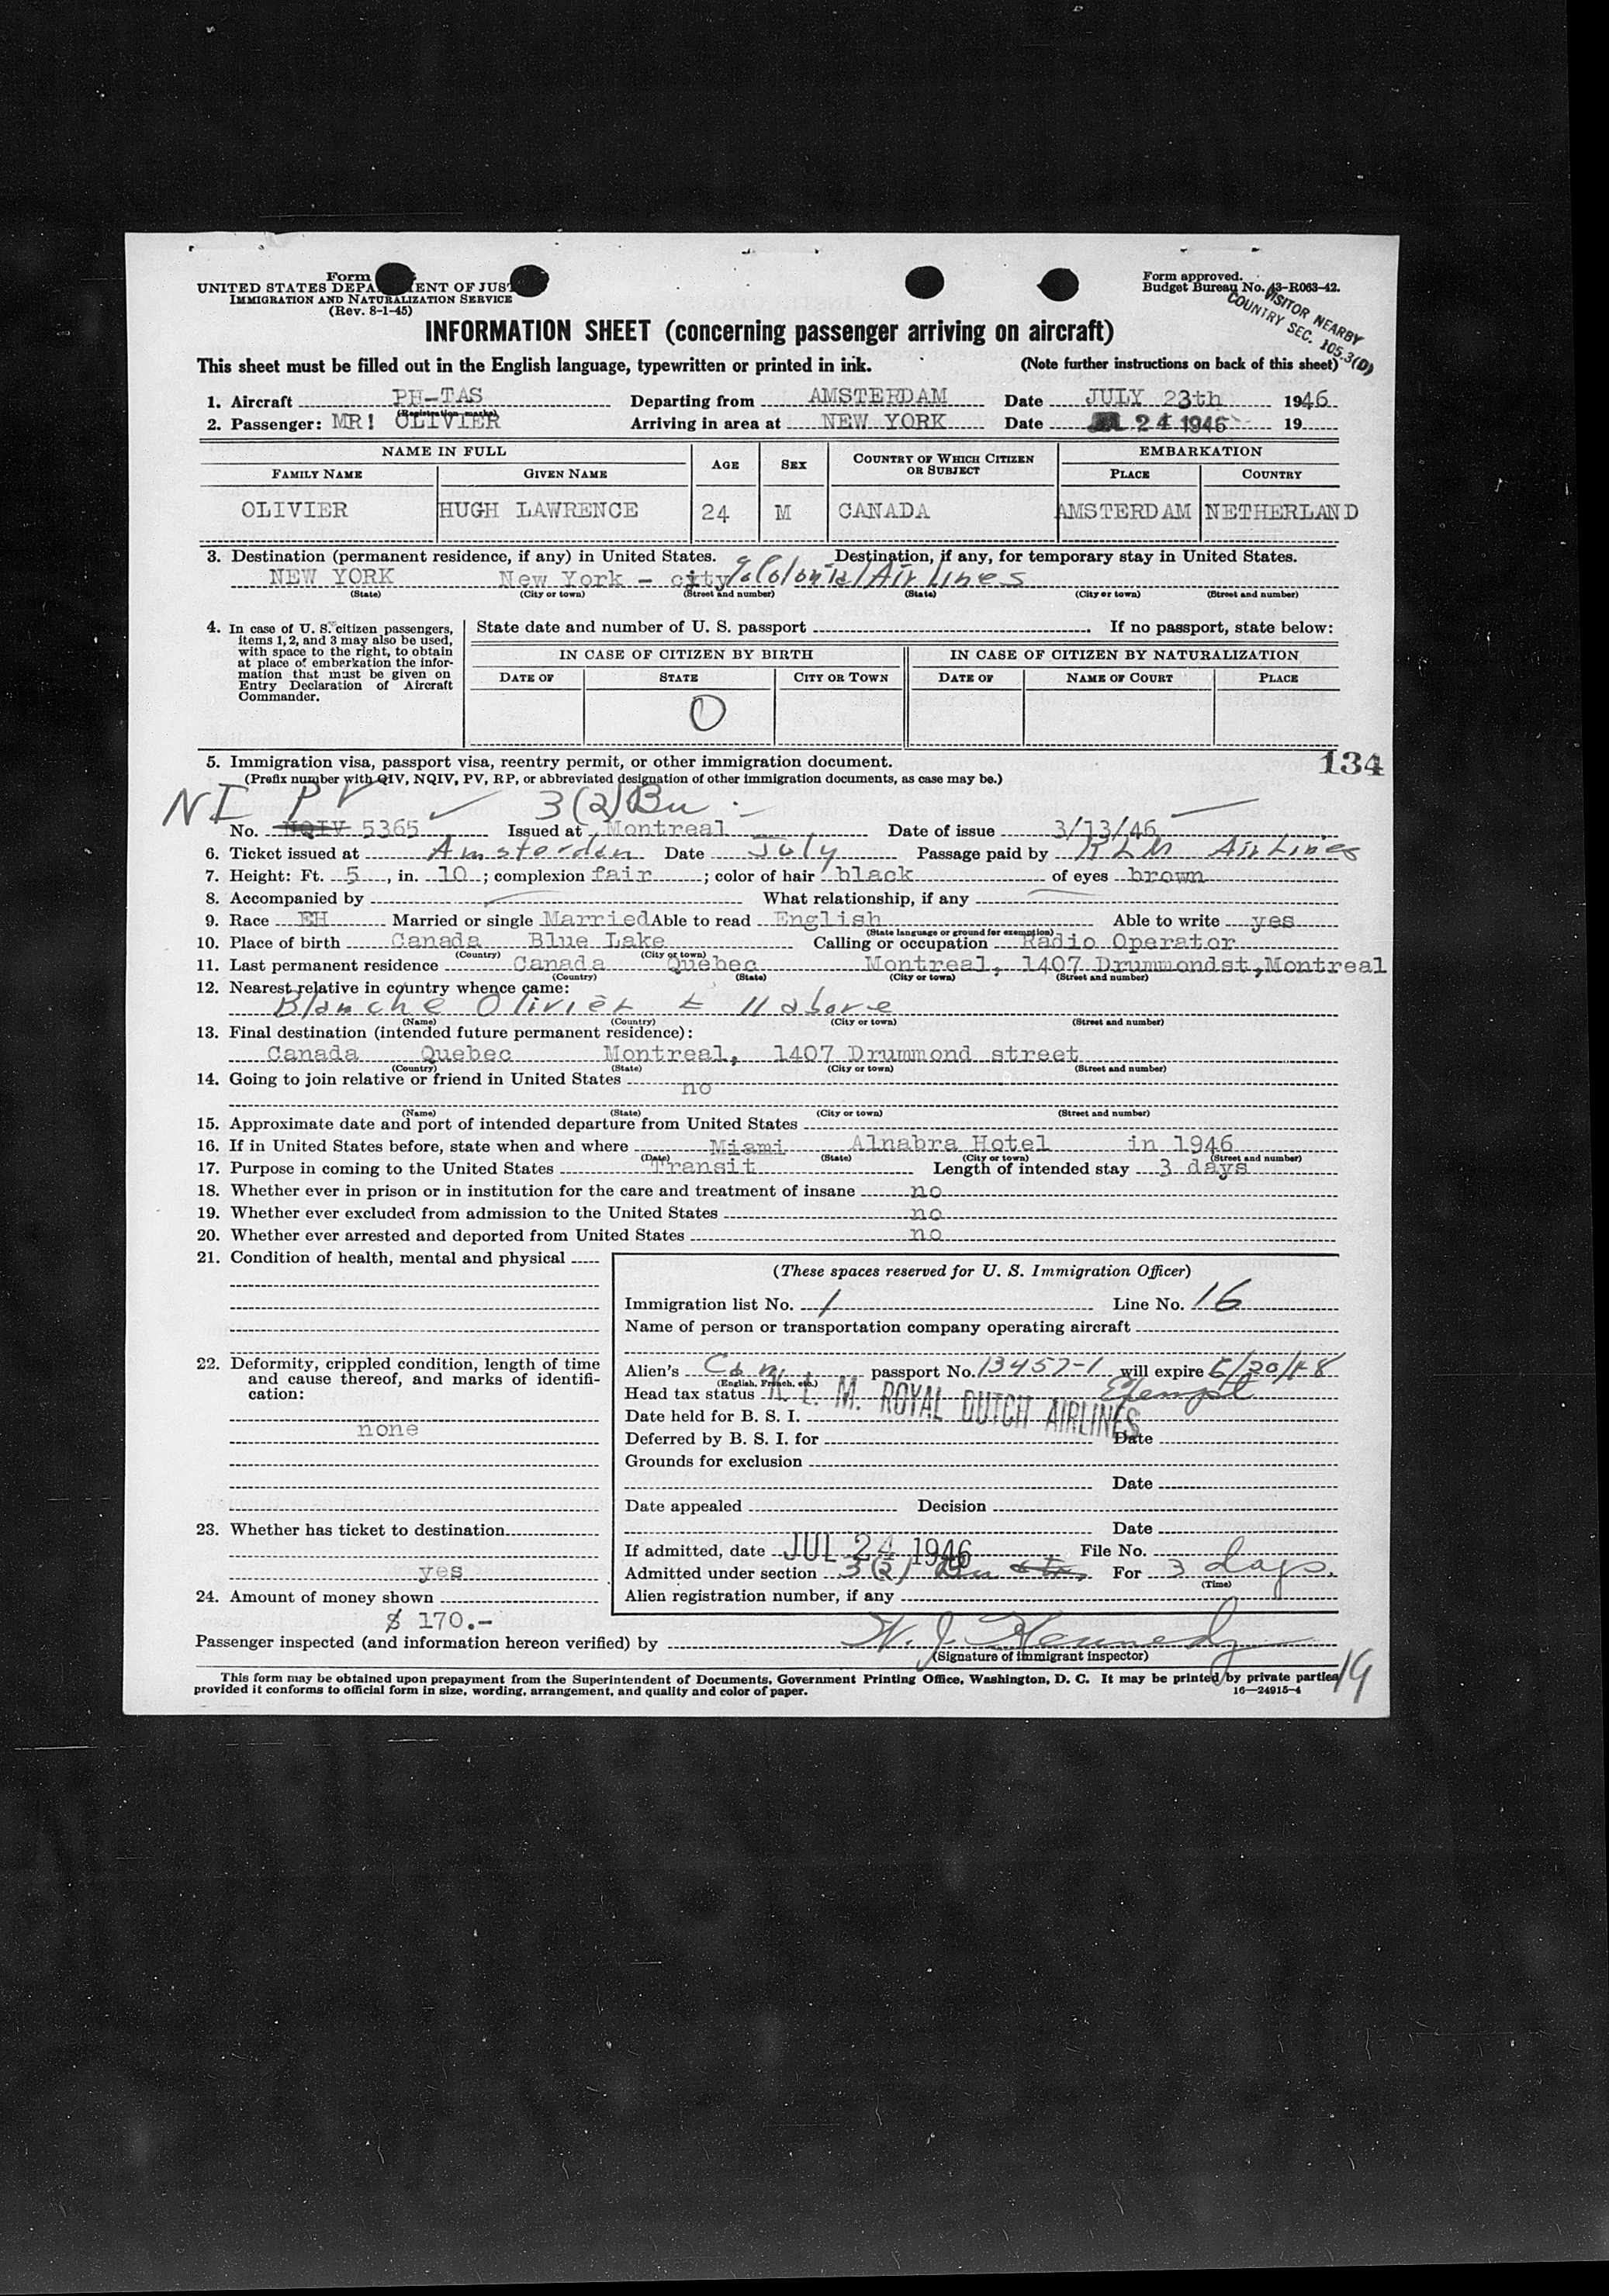 Form
UNITED STATES DEPA ENT OF JUST
IMMIGRATION AND NATURALIZATION SERVICE
(Rev. 8-1-45)
Form approved.
Budget Bureau No. 43-R063-42.
VISITOR NEARBY
COUNTRY SEC. 105.3(D)
INFORMATION SHEET (concerning passenger arriving on aircraft)
This sheet must be filled out in the English language, typewritten or printed in ink. (Note further instructions on back of this sheet)
1. Aircraft PH-TAS Departing from AMSTERDAM Date JULY 23th 1946
(Registration marks)
2. Passenger: MR! OLIVIER Arriving in area at NEW YORK Date JUL 24 1946 19
NAME IN FULL AGE SEX COUNTRY OF WHICH CITIZEN OR SUBJECT EMBARKATION
FAMILY NAME GIVEN NAME PLACE COUNTRY
OLIVIER HUGH LAWRENCE 24 M CANADA AMSTERDAM NETHERLAND
3. Destination (permanent residence, if any) in United States. Destination, if any, for temporary stay in United States.
NEW YORK New York - city % Colonial Air lines
(State) (City or town) (Street and number) (State) (City or town) (Street and number)
4. In case of U. S. citizen passengers, items 1, 2, and 3 may also be used, with space to the right, to obtain at place of embarkation the information that must be given on Entry Declaration of Aircraft Commander.
State date and number of U. S. passport If no passport, state below:
IN CASE OF CITIZEN BY BIRTH IN CASE OF CITIZEN BY NATURALIZATION
DATE OF STATE CITY OR TOWN DATE OF NAME OF COURT PLACE
0
5. Immigration visa, passport visa, reentry permit, or other immigration document. 134
(Prefix number with QIV, NQIV, PV, RP, or abbreviated designation of other immigration documents, as case may be.)
NI PV 3(2) Bu
No. NQIV 5365 Issued at Montreal Date of issue 3/13/46
6. Ticket issued at Amsterdam Date July Passage paid by KLM AirLines
7. Height: Ft. 5, in. 10; complexion fair; color of hair black of eyes brown
8. Accompanied by What relationship, if any
9. Race EH Married or single Married Able to read English Able to write yes
(State language or ground for exemption)
10. Place of birth Canada Blue Lake Calling or occupation Radio Operator
(Country) (City or town)
11. Last permanent residence Canada Quebec Montreal, 1407 Drummondst, Montreal
(Country) (State) (City or town) (Street and number)
12. Nearest relative in country whence came:
Blanche Olivier 11 above
(Name) (Country) (City or town) (Street and number)
13. Final destination (intended future permanent residence):
Canada Quebec Montreal, 1407 Drummond street
(Country) (State) (City or town) (Street and number)
14. Going to join relative or friend in United States
no
(Name) (State) (City or town) (Street and number)
15. Approximate date and port of intended departure from United States
16. If in United States before, state when and where Miami Alnabra Hotel in 1946
(Date) (State) (City or town) (Street and number)
17. Purpose in coming to the United States Transit Length of intended stay 3 days
18. Whether ever in prison or in institution for the care and treatment of insane no
19. Whether ever excluded from admission to the United States no
20. Whether ever arrested and deported from United States no
21. Condition of health, mental and physical
22. Deformity, crippled condition, length of time and cause thereof, and marks of identification:
none
23. Whether has ticket to destination
yes
24. Amount of money shown
$ 170.-
(These spaces reserved for U. S. Immigration Officer)
Immigration list No. 1 Line No. 16
Name of person or transportation company operating aircraft
K. L. M. ROYAL DUTCH AIRLINES
Alien's Can. passport No. 13457-1 will expire 6/20/48
(English, French, etc.)
Head tax status Exempt
Date held for B. S. I.
Deferred by B. S. I. for Date
Grounds for exclusion
Date
Date appealed Decision
Date
If admitted, date JUL 24 1946 File No.
Admitted under section 3(2) Bu For 3 days.
(Time)
Alien registration number, if any
Passenger inspected (and information hereon verified) by W. J. Kennedy
(Signature of immigrant inspector)
This form may be obtained upon prepayment from the Superintendent of Documents, Government Printing Office, Washington, D. C. It may be printed by private parties
provided it conforms to official form in size, wording, arrangement, and quality and color of paper. 16—24915-4
19